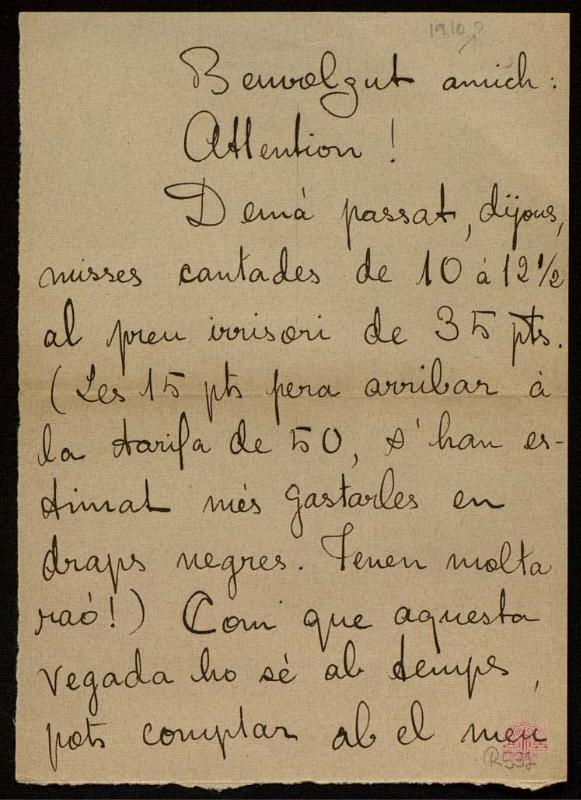 1910?
Benvolgut amich:
Attention!
Demá passat, dijous,
misses cantades de 10 á 12 1/2
al preu irrisori de 35 pts.
(Les 15 pts pera arribar á
la tarifa de 50, s'han es-
timat més gastarles en
draps negres. Tenen molta
raó!) Com que aquesta
vegada ho sé ab temps,
pots comptar ab el meu
R.532